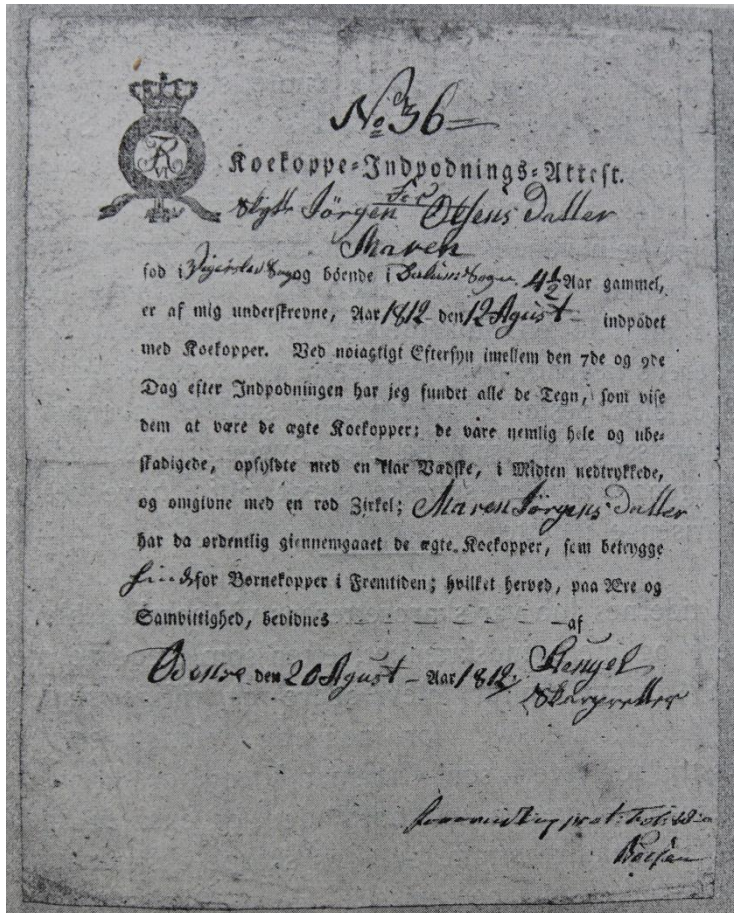 No 36
FR
VI
Koekoppe-Indpodnings-Attest.
For
Jörgen Olsens Datter
Maren
fød i Vigerslev Sogn og boende i Sogn 4 1/2 Aar gammel,
er af mig underskrevne, Aar 1812 den 12 Agust indpodet
med Koekopper. Ved noiagtigt Eftersyn imellem den 7de og 9de
Dag efter Indpodningen har jeg fundet alle de Tegn, som vise
dem at være de ægte Koekopper; de vare nemlig hele og ube-
skadigede, opfyldte med en klar Vædske, i Midten nedtrykkede,
og omgivne med en rod Zirkel; Maren Jörgens Datter
har da ordentlig giennemgaaet de ægte Koekopper, som betrygge
hende for Bornekopper i Fremtiden; hvilket herved, paa Ære og
Samvittighed, bevidnes — af
Odense den 20 Agust — Aar 1812. Stengel
Skarpretter